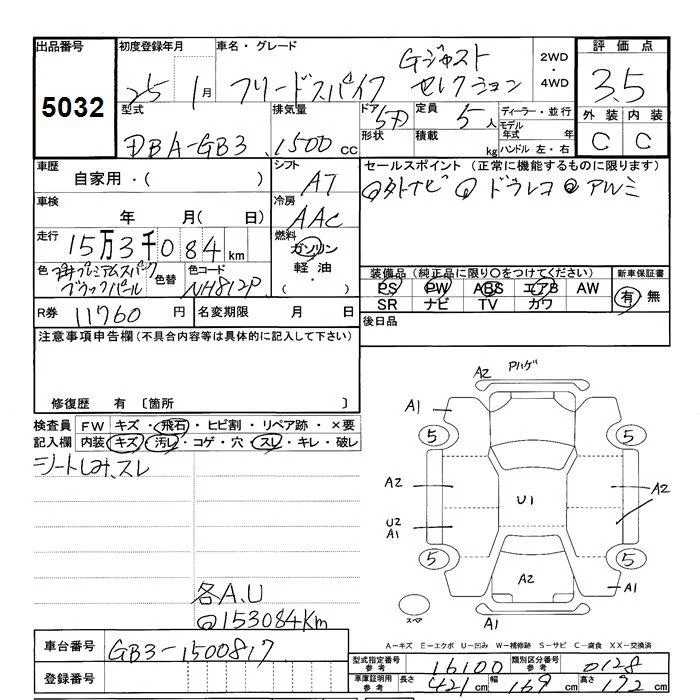 出品番号 初度登録年月 車名・グレード 2WD・4WD 評価点
5032 25年1月 フリードスパイク Gジャストセレクション 3.5
型式 排気量 ドア 5D 定員 5人 ディーラー・並行 外装 内装
DBA-GB3 1500cc 形状 積載 kg モデル年式 年 C C
ハンドル 左・右
車歴 シフト セールスポイント (正常に機能するものに限ります)
自家用・( ) AT 外ナビ ドラレコ アルミ
車検 冷房
年 月( 日) AAC
走行 燃料
15万3千084km ガソリン
軽油・( )
色 プレミアムスパイスブラックパール 色替 色コード NH812P 装備品(純正品に限り○をつけてください) 新車保証書
PS PW ABS エアB AW 有・無
SR ナビ TV
R券 11760円 名変期限 月 日 後日品
注意事項申告欄(不具合内容等は具体的に記入して下さい)
修復歴 有 〔箇所 〕
検査員記入欄 FW キズ・飛石・ヒビ割・リペア跡・×要
内装 キズ・汚レ・コゲ・穴・スレ・キレ・破レ
シートしみ、スレ
A2
A1
5 5
A2 A2
U1
U2
A1
5 5
A2
A1
スペア A1
各A.U
153084Km
A-キズ E-エクボ U-凹み W-補修跡 S-サビ C-腐食 XX-交換済
車台番号 GB3-1500817
型式指定番号 参考 16100 類別区分番号 参考 0128
登録番号
車庫証明用 参考 長さ 421cm 幅 169cm 高さ 172cm